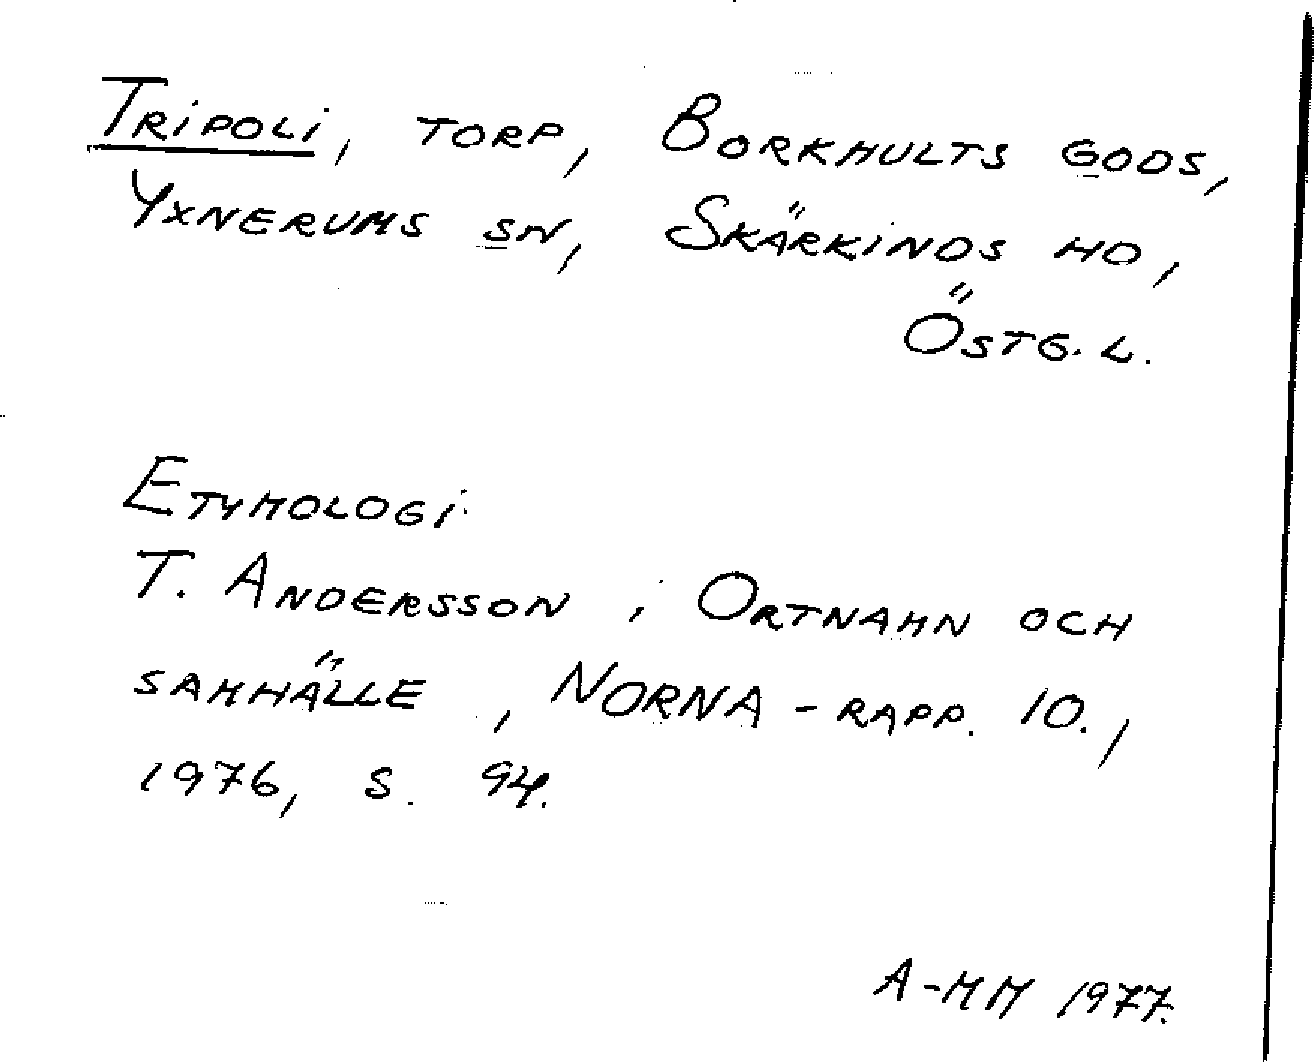 Tripoli, torp, Borkhults gods,
Yxnerums sn, Skärkinds hd,
Östg. l.
Etymologi
T. Andersson, i Ortnamn och
samhälle, NORNA-rapp. 10.,
1976, s. 94.
A-MM 1977.